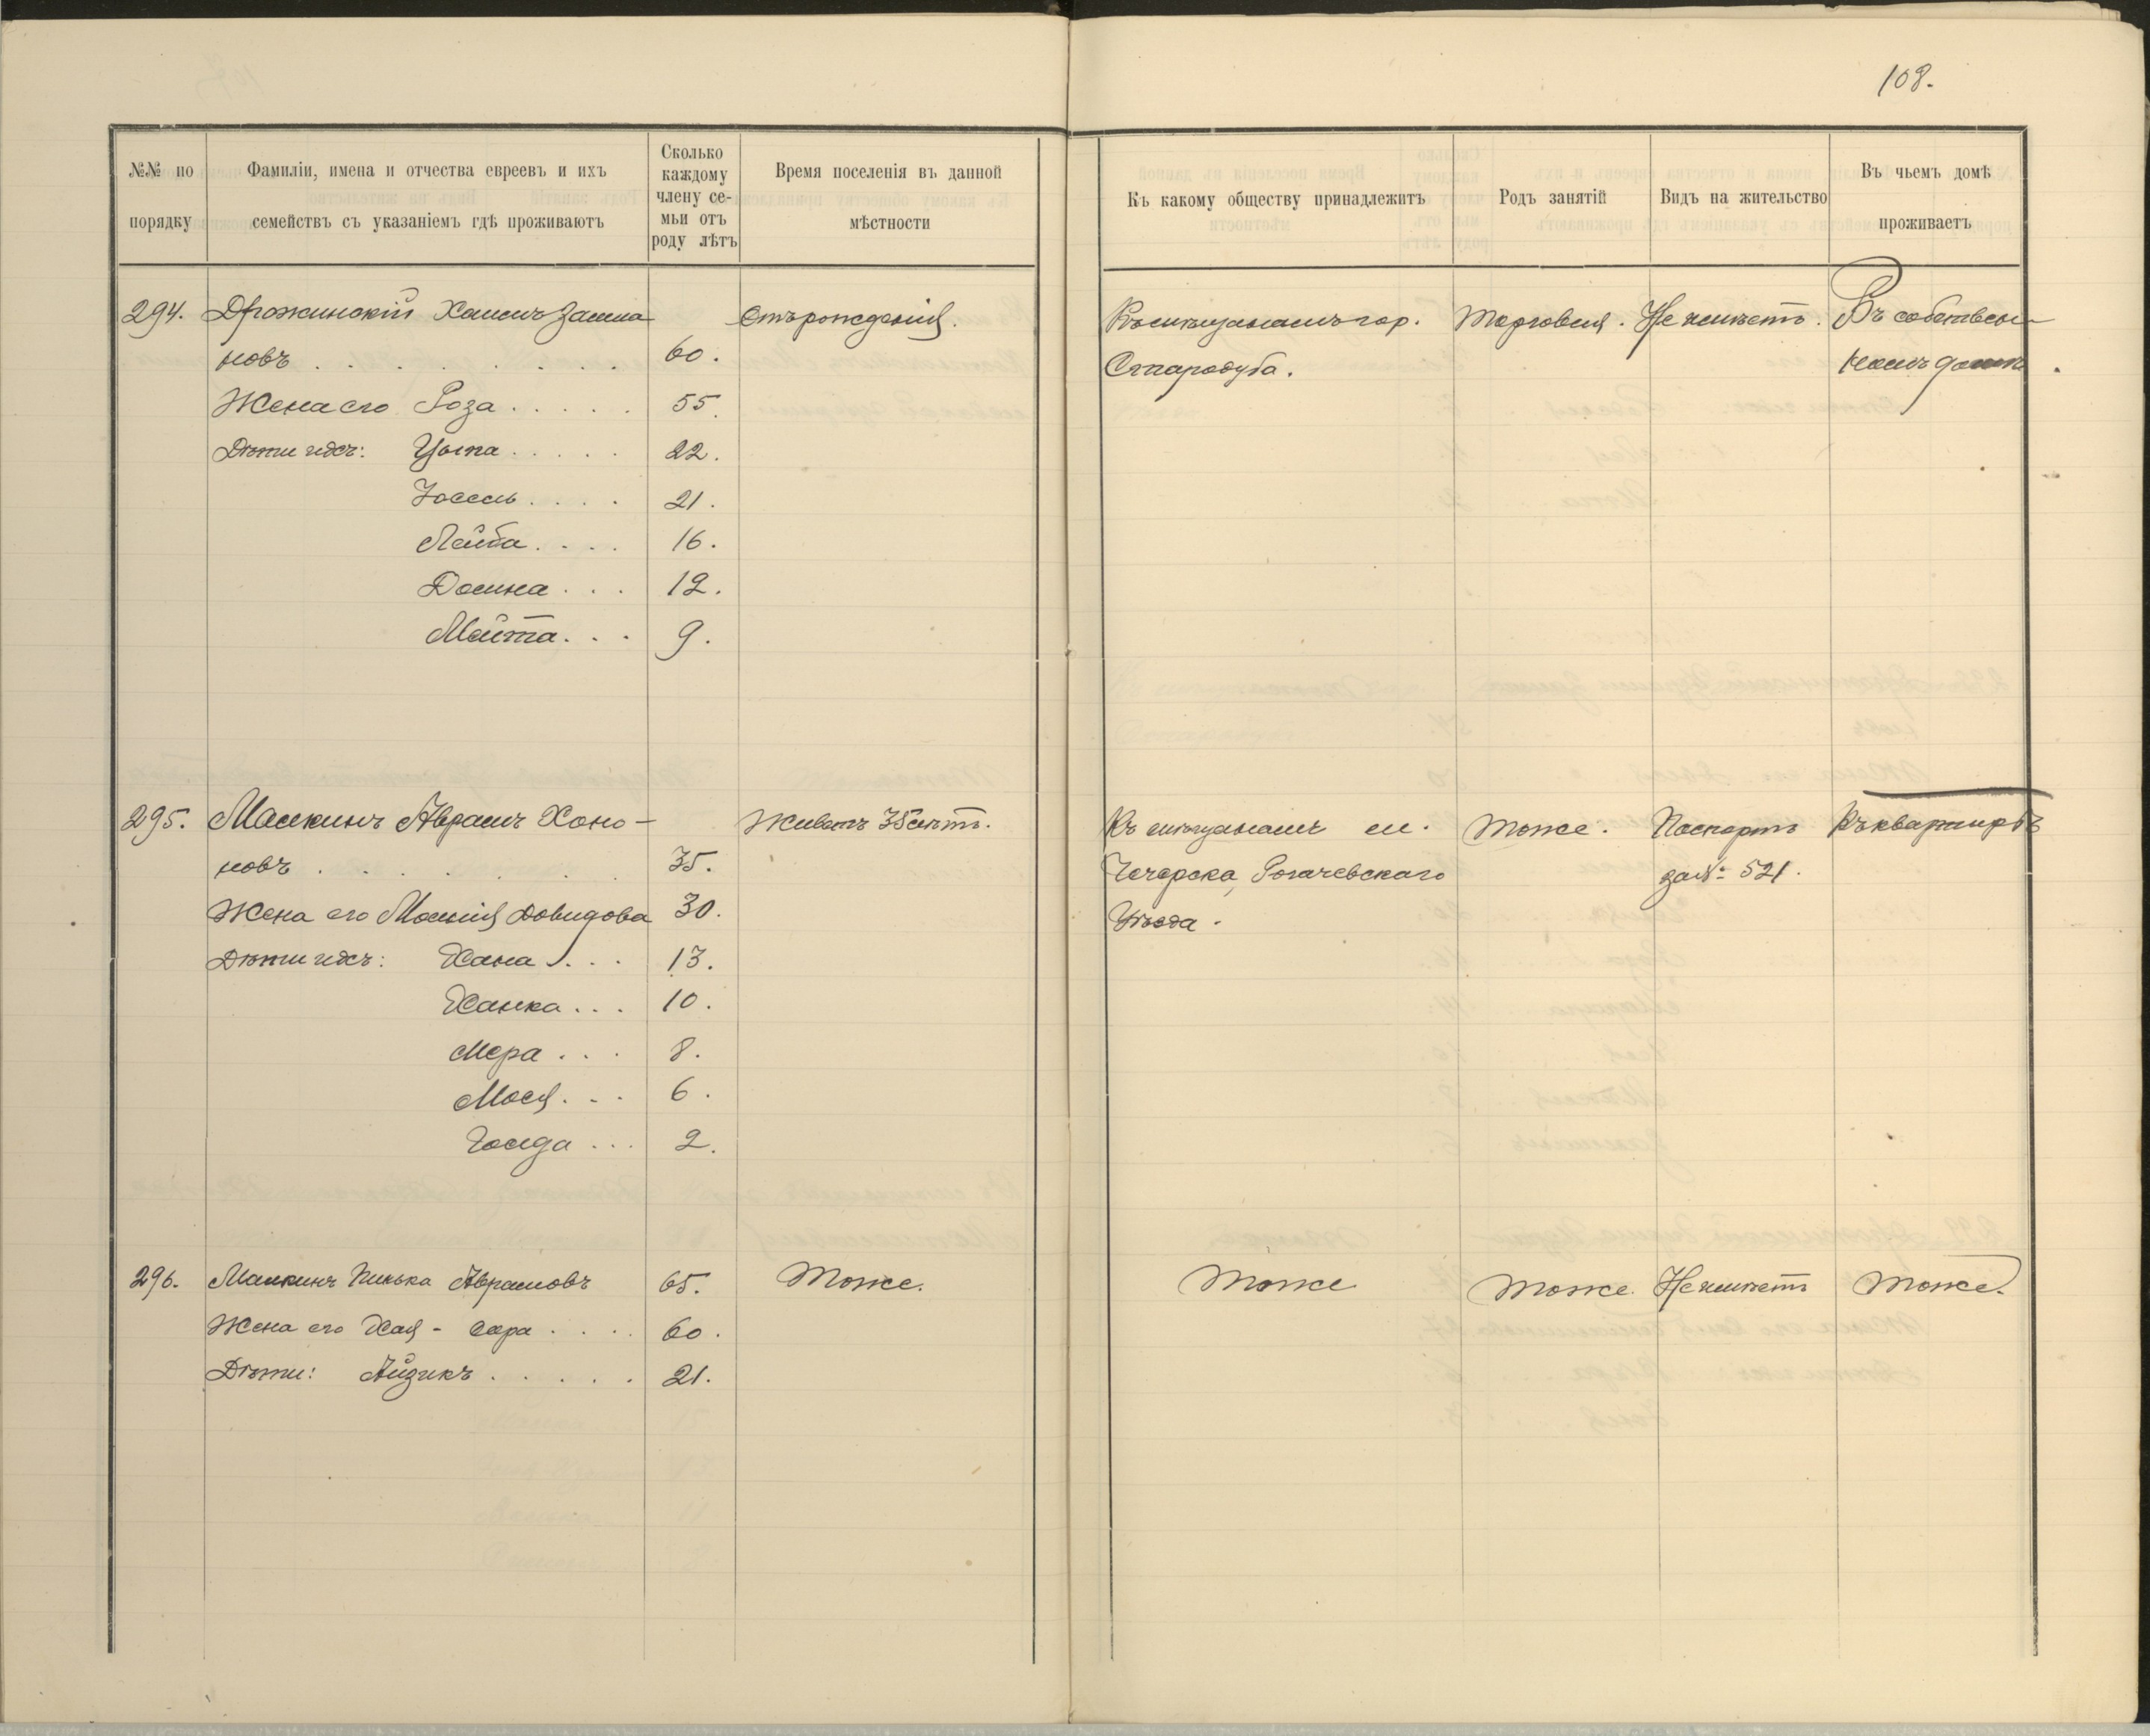 108.
№№ по
порядку
Фамиліи, имена и отчества евреевъ и ихъ
семействъ съ указаніемъ гдѣ проживаютъ
Сколько
каждому
члену се-
мьи отъ
роду лѣтъ
Время поселенія въ данной
мѣстности
Къ какому обществу принадлежитъ
Родъ занятій
Видъ на жительство
Въ чьемъ домѣ
проживаетъ
294. Дрожинскій Хаимъ Залма Отъ рожденія. Къ мѣщанамъ гор. Торговля. Не имѣетъ. Въ собствен-
новъ . . . . . . . 60. Стародуба. номъ домѣ.
Жена его Роза . . . . . 55.
Дѣти ихъ: Цыпа . . . . . 22.
Іосель . . . . 21.
Лейба . . . . 16.
Домна . . . 12.
Мейта . . . 9.
295. Малкинъ Абрамъ Хоно- Живетъ 35 лѣтъ. Къ мѣщанамъ м. Тоже. Паспортъ Въ квартирѣ
новъ . . . . . . 35. Чечерска, Рогачевскаго за № 521.
Жена его Довидова 30. Уѣзда.
Дѣти ихъ: Хана . . . 13.
Ханка . . . 10.
Мера . . . 8.
Мося . . . 6.
2.
296. Малкинъ Пинька Абрамовъ 65. Тоже. Тоже Тоже. Не имѣетъ Тоже.
Жена его Хая - Сара . . . . 60.
Дѣти: Айзикъ . . . . . 21.